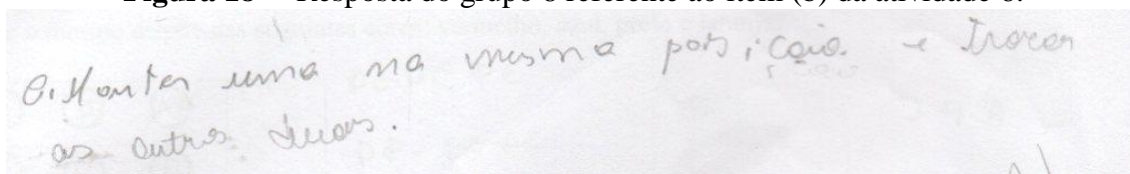 Figura 18 – Resposta do grupo 6 referente ao item (b) da atividade 6.
B. Manter uma na mesma posição e trocar
as outras duas.